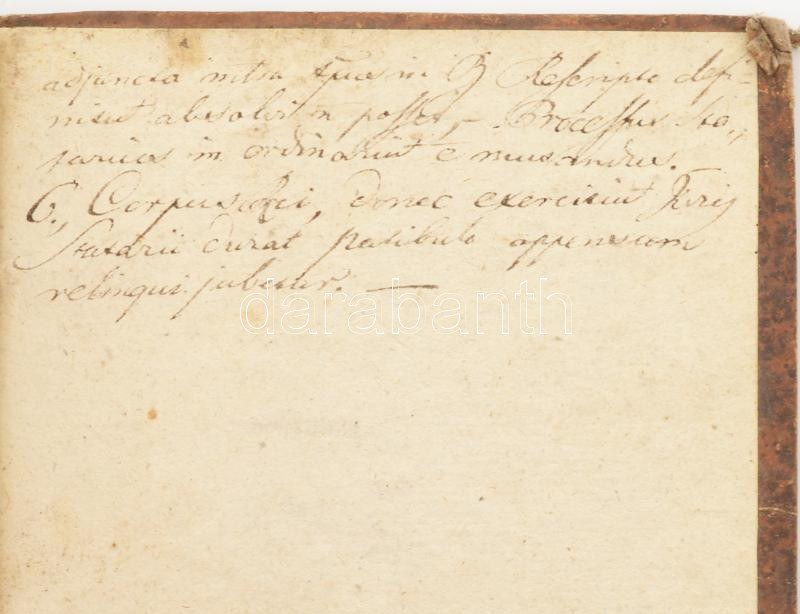 adjuncta intra quos in B Rescripto defi-
niunt absolvi n posset, – Processus Sta„
tarius in ordinariut ē mutandus.
6., Corpus Rei, donec exercitiut Juris
Statarii durat patibulo appensum
relinqui jubetur. —
darabanth